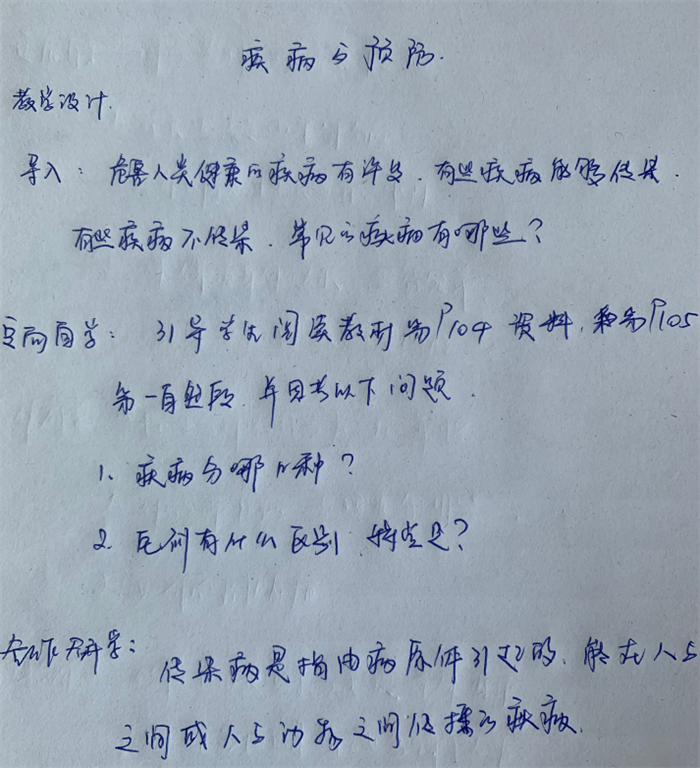 疾病与预防.
教学设计.
导入: 危害人类健康的疾病有许多.有些疾病能够传染.
有些疾病不传染.常见的疾病有哪些?
自学: 引导学生阅读教材第P104 资料,和第P105
第一自然段.并思考以下问题.
1、疾病分哪几种?
2. 它们有什么区别.特点是?
合作研学: 传染病是指由病原体引起的、能在人与
之间或人与动物之间传播的疾病.